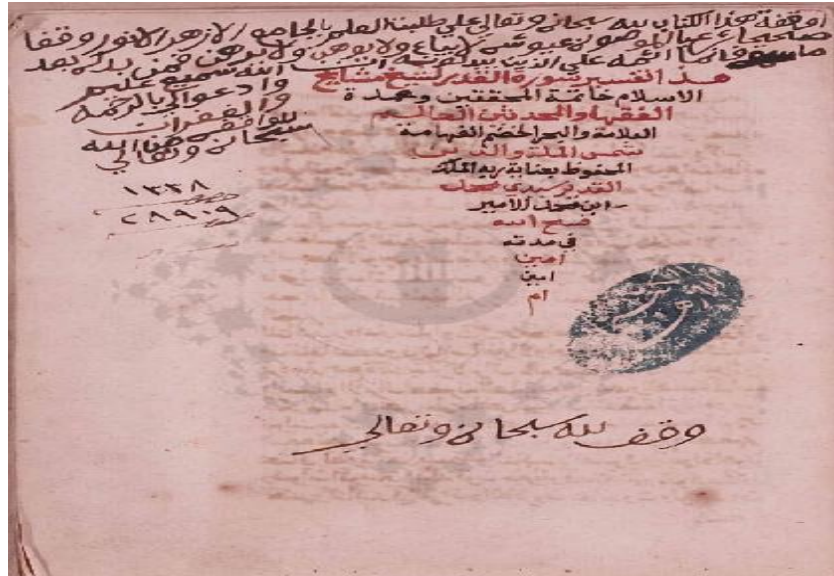 اوقفة هذا الكتاب لله سبحانه وتعالى علي طلبة العلم بالجامع الازهر الانور وقفا
صحيحا لا يباع ولا يوهب ولا يرهن فمن بدله بعد
ما سمعه فانما اثمه علي الذين يبدلونه ان الله سميع عليم
وادعوا لي بالرحمة
والغفران
سبحانه وتعالي
١٣٣٨
٢٨٩٠٩
هذا تفسير سورة القدر لشيخ مشايخ
الاسلام خاتمة المحققين وعمدة
الفقها والمحدثين العالم
العلامة والبحر الخضم الفهامة
شمس الملة والدين
المحفوظ بعناية ربه الملك
القدير سيدي محمد
ابن محمد الامير
فسح الله
في مدته
امين
امين
ام
وقف لله سبحانه وتعالي